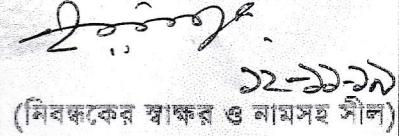 ১২-১১-১৯
(নিবন্ধকের স্বাক্ষর ও নামসহ সীল)